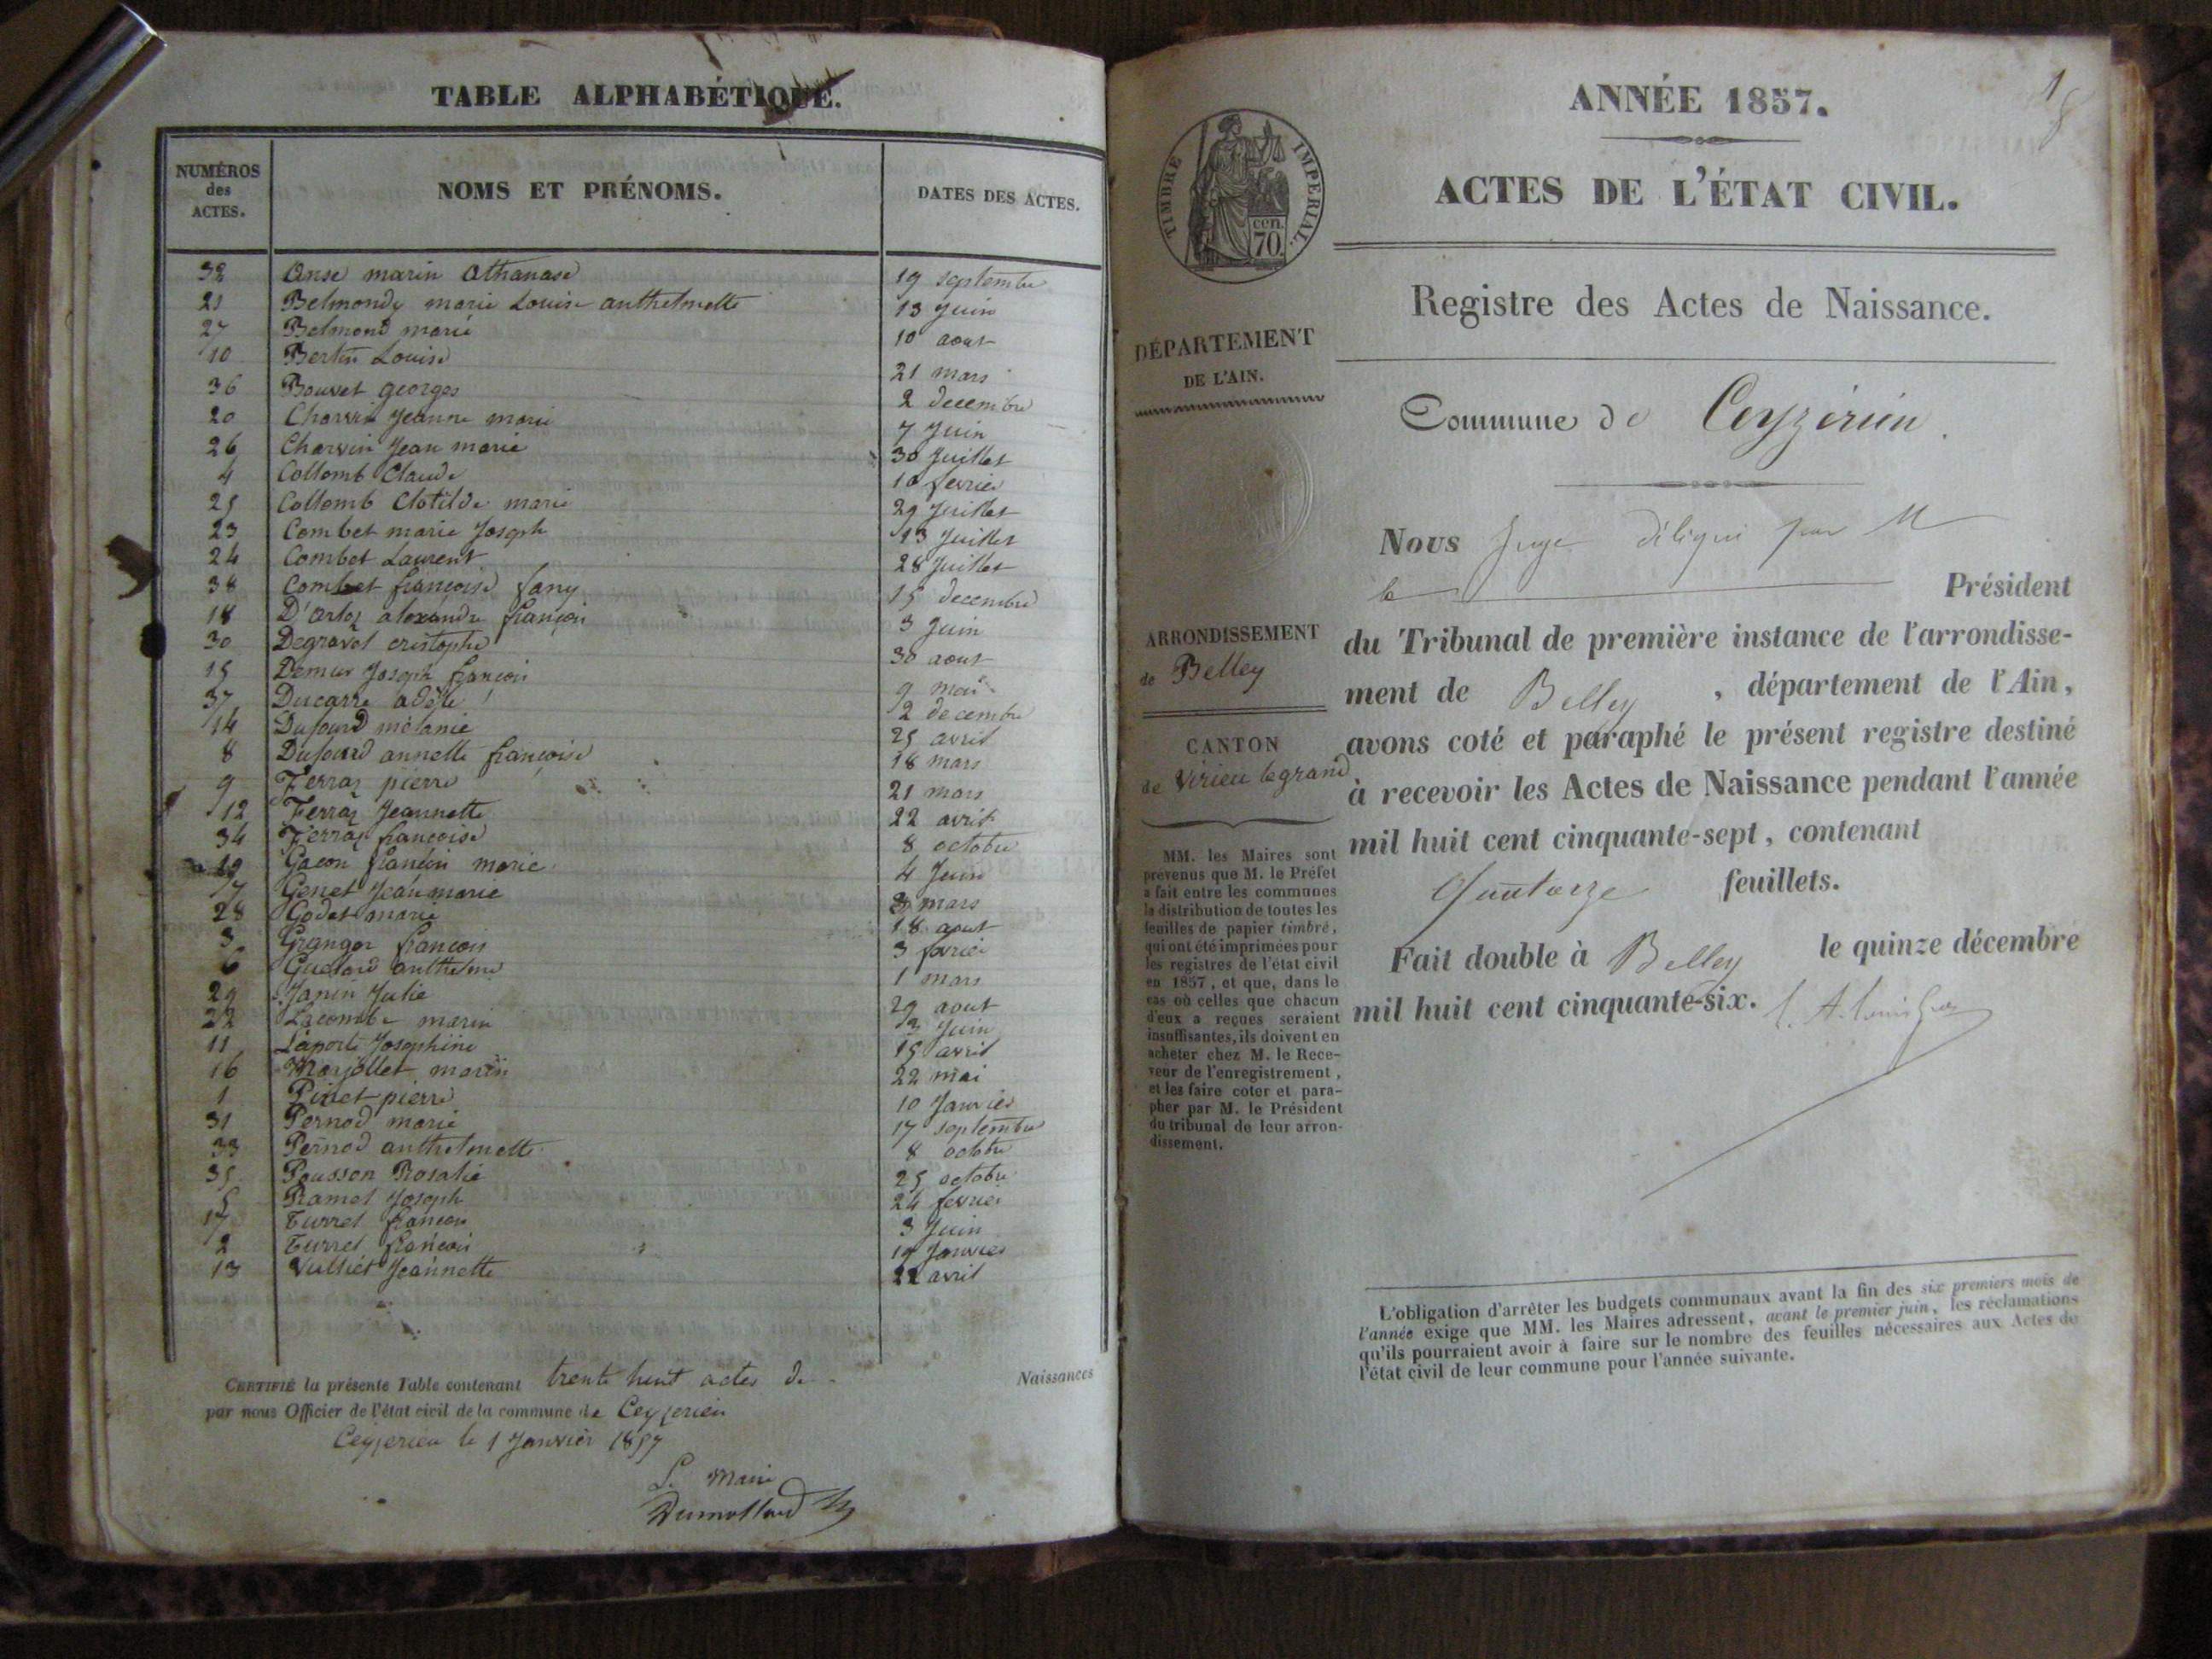 TABLE ALPHABÉTIQUE.
NUMÉROS des ACTES. NOMS ET PRÉNOMS. DATES DES ACTES.
32 Anse marin Athanase 19 septembre
21 Belmondy marie Louise anthelmette 13 Juin
27 Belmond marie 10 aout
10 Bertin Louise 21 mars
36 Bouvet georges 2 decembre
20 Charvin Jeanne marie 7 Juin
26 Charvin Jean marie 30 Juillet
4 Collomb Claude 10 fevrier
25 Collomb Clotilde marie 29 Juillet
23 Combet marie Joseph 13 Juillet
24 Combet Laurent 28 Juillet
38 Combet françoise fany 15 decembre
18 D'arloz alexandre françois 3 Juin
30 Degravel cristophe 30 aout
15 Demur Joseph françois 9 mai
37 Ducarre adèle 2 decembre
14 Dufourd mélanie 25 avril
8 Dufourd annette françoise 18 mars
9 Ferraz pierre 21 mars
12 Ferraz Jeannette 22 avril
34 Ferraz françoise 8 octobre
19 Gacon françois marie 4 Juin
7 Genet Jean marie mars
28 Godet marie 18 aout
3 Granger françois 3 fevrier
6 anthelme 1 mars
29 Janin Julie 29 aout
22 Lacombe marin Juin
11 Laporte Josephine 15 avril
16 Marjollet marin 22 mai
1 Pinet pierre 10 Janvier
31 Pernod marie 17 septembre
33 Pernod anthelmette 8 octobre
35 Pousson Rosalie 25 octobre
5 Ramel Joseph 24 fevrier
17 Turrel françois 3 Juin
2 Turrel françois 19 Janvier
13 Vulliet Jeannette 22 avril
CERTIFIÉ la présente Table contenant trente huit actes de Naissances
par nous Officier de l'état civil de la commune de Ceyzerieu
Ceyzerieu le 1 Janvier 1857
Le Maire
Dumollard
1
8
ANNÉE 1857.
ACTES DE L'ÉTAT CIVIL.
TIMBRE IMPÉRIAL.
cen. 70.
Registre des Actes de Naissance.
DÉPARTEMENT
DE L'AIN.
Commune de Ceyzérieu.
Nous Juge délégué par M
le Président
ARRONDISSEMENT
de Belley
du Tribunal de première instance de l'arrondisse-
ment de Belley, département de l'Ain,
avons coté et paraphé le présent registre destiné
à recevoir les Actes de Naissance pendant l'année
mil huit cent cinquante-sept, contenant
Quatorze feuillets.
Fait double à Belley le quinze décembre
mil huit cent cinquante-six.
CANTON
de Virieu le grand
MM. les Maires sont
prévenus que M. le Préfet
a fait entre les communes
la distribution de toutes les
feuilles de papier timbré,
qui ont été imprimées pour
les registres de l'état civil
en 1857, et que, dans le
cas où celles que chacun
d'eux a reçues seraient
insuffisantes, ils doivent en
acheter chez M. le Rece-
veur de l'enregistrement,
et les faire coter et para-
pher par M. le Président
du tribunal de leur arron-
dissement.
L'obligation d'arrêter les budgets communaux avant la fin des six premiers mois de
l'année exige que MM. les Maires adressent, avant le premier juin, les réclamations
qu'ils pourraient avoir à faire sur le nombre des feuilles nécessaires aux Actes de
l'état civil de leur commune pour l'année suivante.